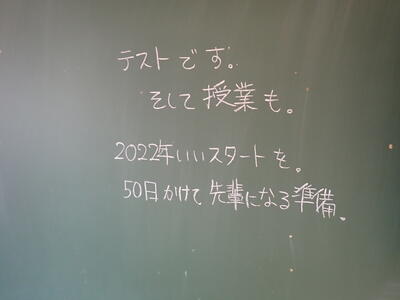 テストです。
そして授業も。
2022年いいスタートを。
50日かけて先輩になる準備。